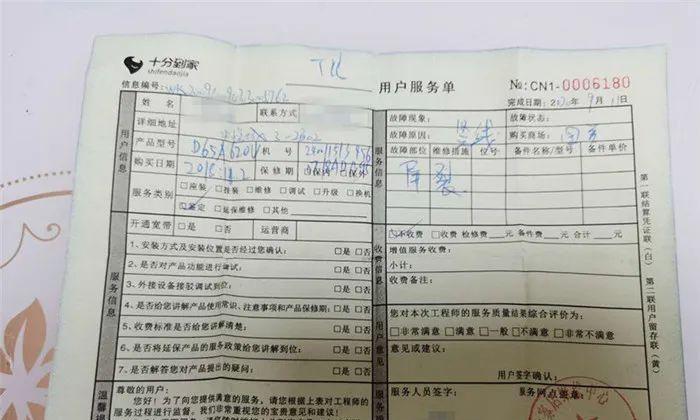 十分到家
shifendaojia
TCL
用户服务单
№:CN1-0006180
信息编号:
完成日期:2020年9月1日
姓名
联系方式
详细地址
产品型号 D65A620U 机号
购买日期 2018.4.2 保修期 □保内 □保外
用户信息
服务类别 □座装 □挂装 □维修 □调试 □升级 □换机
□鉴定 □延保维修 □其他
开通宽带 □是□否 运营商
1、安装方式及安装位置是否经过您确认: □是 □否
2、是否对产品功能进行调试: □是 □否
3、外接设备接驳调试到位: □是 □否
4、是否给您讲解产品使用常识、注意事项和产品保修期: □是 □否
5、收费标准是否给您讲解清楚: □是 □否
6、是否将延保产品的服务政策给您讲解到位: □是 □否
7、是否解答您对产品提出的疑问: □是 □否
服务信息
温馨
尊敬的用户:
您好!为了向您提供满意的服务,请您根据上表对工程师的
服务过程进行监督。我们非常重视您的宝贵意见和建议!
故障现象: 故障状态:
故障原因: 竖线 购买商场:
故障部位 维修措施 位号 备件名称/型号 备件单价
屏裂
服务信息
□不收费 □收费 检修费 元 备件费 元 合计 元
增值服务收费:
小计:
收费备注:
收费信息
您对本次工程师的服务质量结果综合评价为:
□非常满意 □满意 □一般 □不满意 □非常不满意
意见或建议:
用户签字确认:
服务人员签字:
服务网点盖章:
第一联结算凭证联(白) 第二联用户留存联(黄)